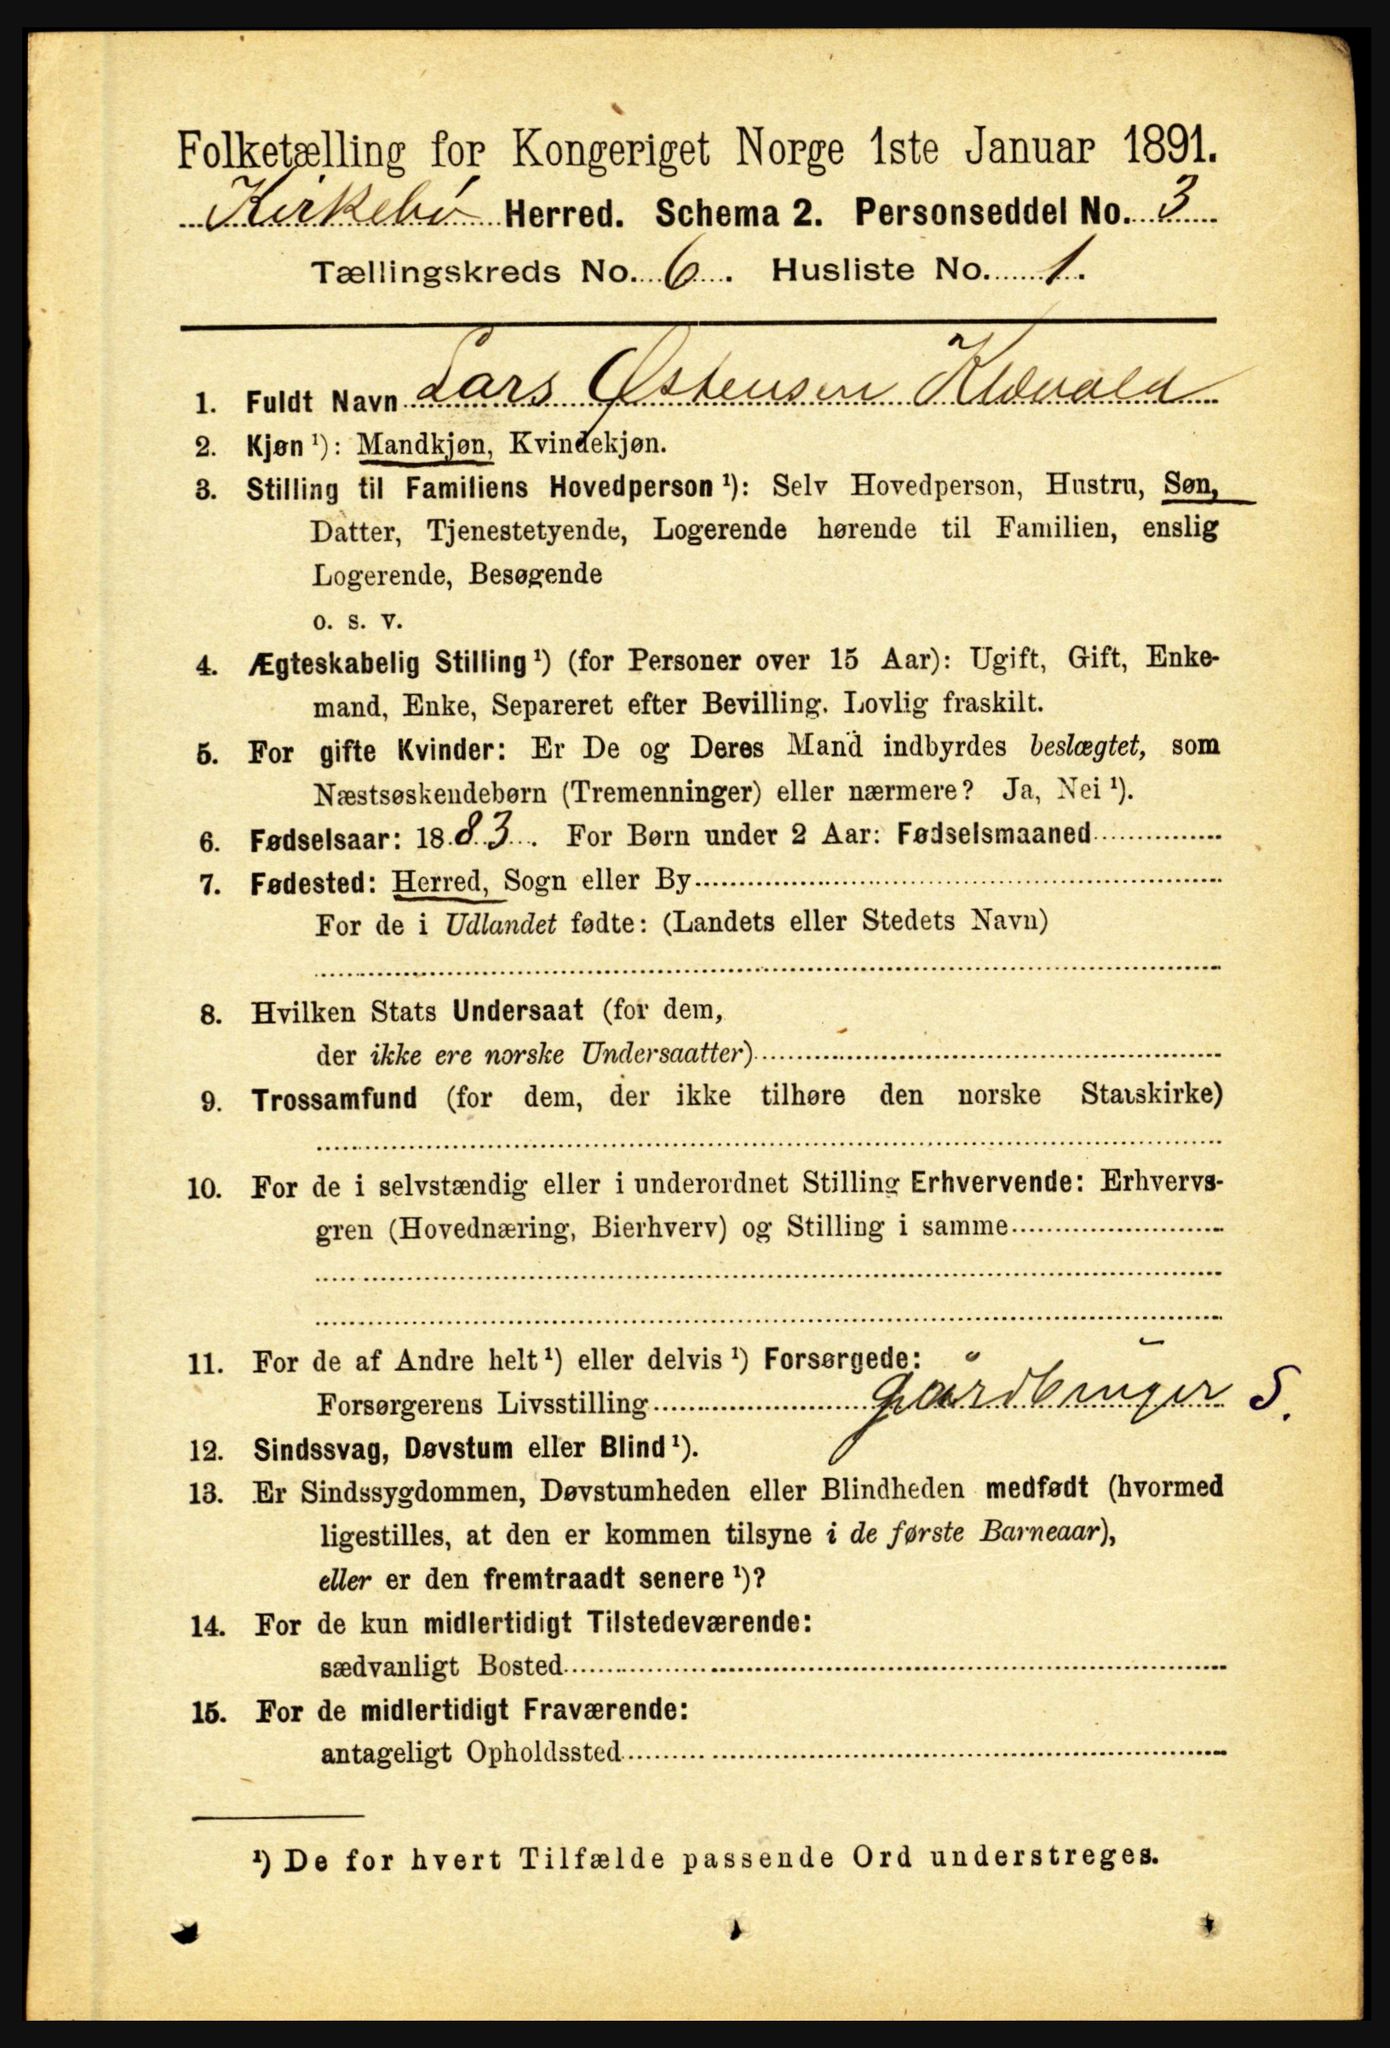 Folketælling for Kongeriget Norge 1ste Januar 1891.
Kirkebø Herred. Schema 2. Personseddel No. 3
Tællingskreds No. 6. Husliste No. 1.
1. Fuldt Navn Lars Østensen Klævold
2. Kjøn¹): Mandkjøn, Kvindekjøn.
3. Stilling til Familiens Hovedperson¹): Selv Hovedperson, Hustru, Søn,
Datter, Tjenestetyende, Logerende hørende til Familien, enslig
Logerende, Besøgende
o. s. v.
4. Ægteskabelig Stilling¹) (for Personer over 15 Aar): Ugift, Gift, Enke-
mand, Enke, Separeret efter Bevilling. Lovlig fraskilt.
5. For gifte Kvinder: Er De og Deres Mand indbyrdes beslægtet, som
Næstsøskendebørn (Tremenninger) eller nærmere? Ja, Nei¹).
6. Fødselsaar: 1883. For Børn under 2 Aar: Fødselsmaaned
7. Fødested: Herred, Sogn eller By
For de i Udlandet fødte: (Landets eller Stedets Navn)
8. Hvilken Stats Undersaat (for dem,
der ikke ere norske Undersaatter)
9. Trossamfund (for dem, der ikke tilhøre den norske Statskirke)
10. For de i selvstændig eller i underordnet Stilling Erhvervende: Erhvervs-
gren (Hovednæring, Bierhverv) og Stilling i samme
11. For de af Andre helt¹) eller delvis¹) Forsørgede:
Forsørgerens Livsstilling Gårdbruger S.
12. Sindssvag, Døvstum eller Blind¹).
13. Er Sindssygdommen, Døvstumheden eller Blindheden medfødt (hvormed
ligestilles, at den er kommen tilsyne i de første Barneaar),
eller er den fremtraadt senere¹)?
14. For de kun midlertidigt Tilstedeværende:
sædvanligt Bosted
15. For de midlertidigt Fraværende:
antageligt Opholdssted
¹) De for hvert Tilfælde passende Ord understreges.